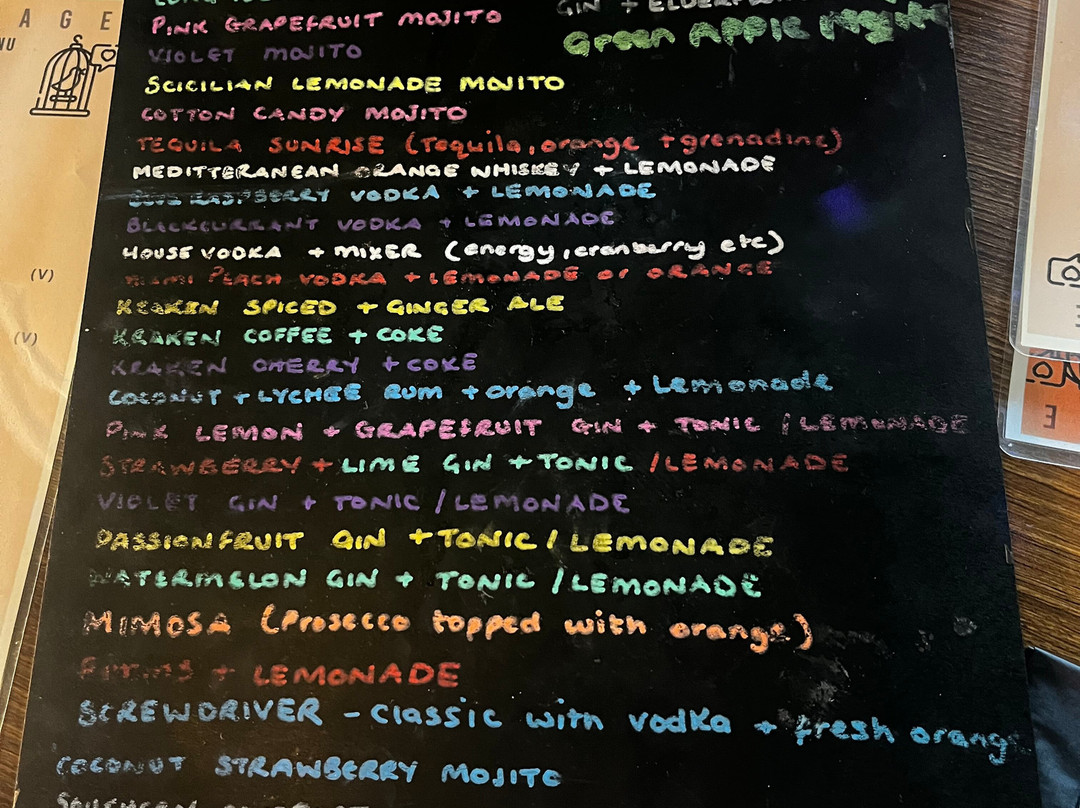 A G E
NU
GIN + ELDERFLOWER
PINK GRAPEFRUIT MOJITO
GREEN APPLE MOJITO
VIOLET MOJITO
SCICILIAN LEMONADE MOJITO
COTTON CANDY MOJITO
TEQUILA SUNRISE (Tequila, orange + grenadine)
MEDITTERANEAN ORANGE WHISKEY + LEMONADE
BLUE RASPBERRY VODKA + LEMONADE
BLACKCURRANT VODKA + LEMONADE
HOUSE VODKA + MIXER (energy, cranberry etc)
(V)
MIAMI PEACH VODKA + LEMONADE or ORANGE
KRAKEN SPICED + GINGER ALE
(V)
KRAKEN COFFEE + COKE
KRAKEN CHERRY + COKE
COCONUT + LYCHEE RUM + orange + Lemonade
PINK LEMON + GRAPEFRUIT GIN + TONIC / LEMONADE
STRAWBERRY + LIME GIN + TONIC / LEMONADE
VIOLET GIN + TONIC / LEMONADE
PASSIONFRUIT GIN + TONIC / LEMONADE
WATERMELON GIN + TONIC / LEMONADE
MIMOSA (Prosecco topped with orange)
+ LEMONADE
SCREWDRIVER - Classic with vodka + fresh orange
COCONUT STRAWBERRY MOJITO